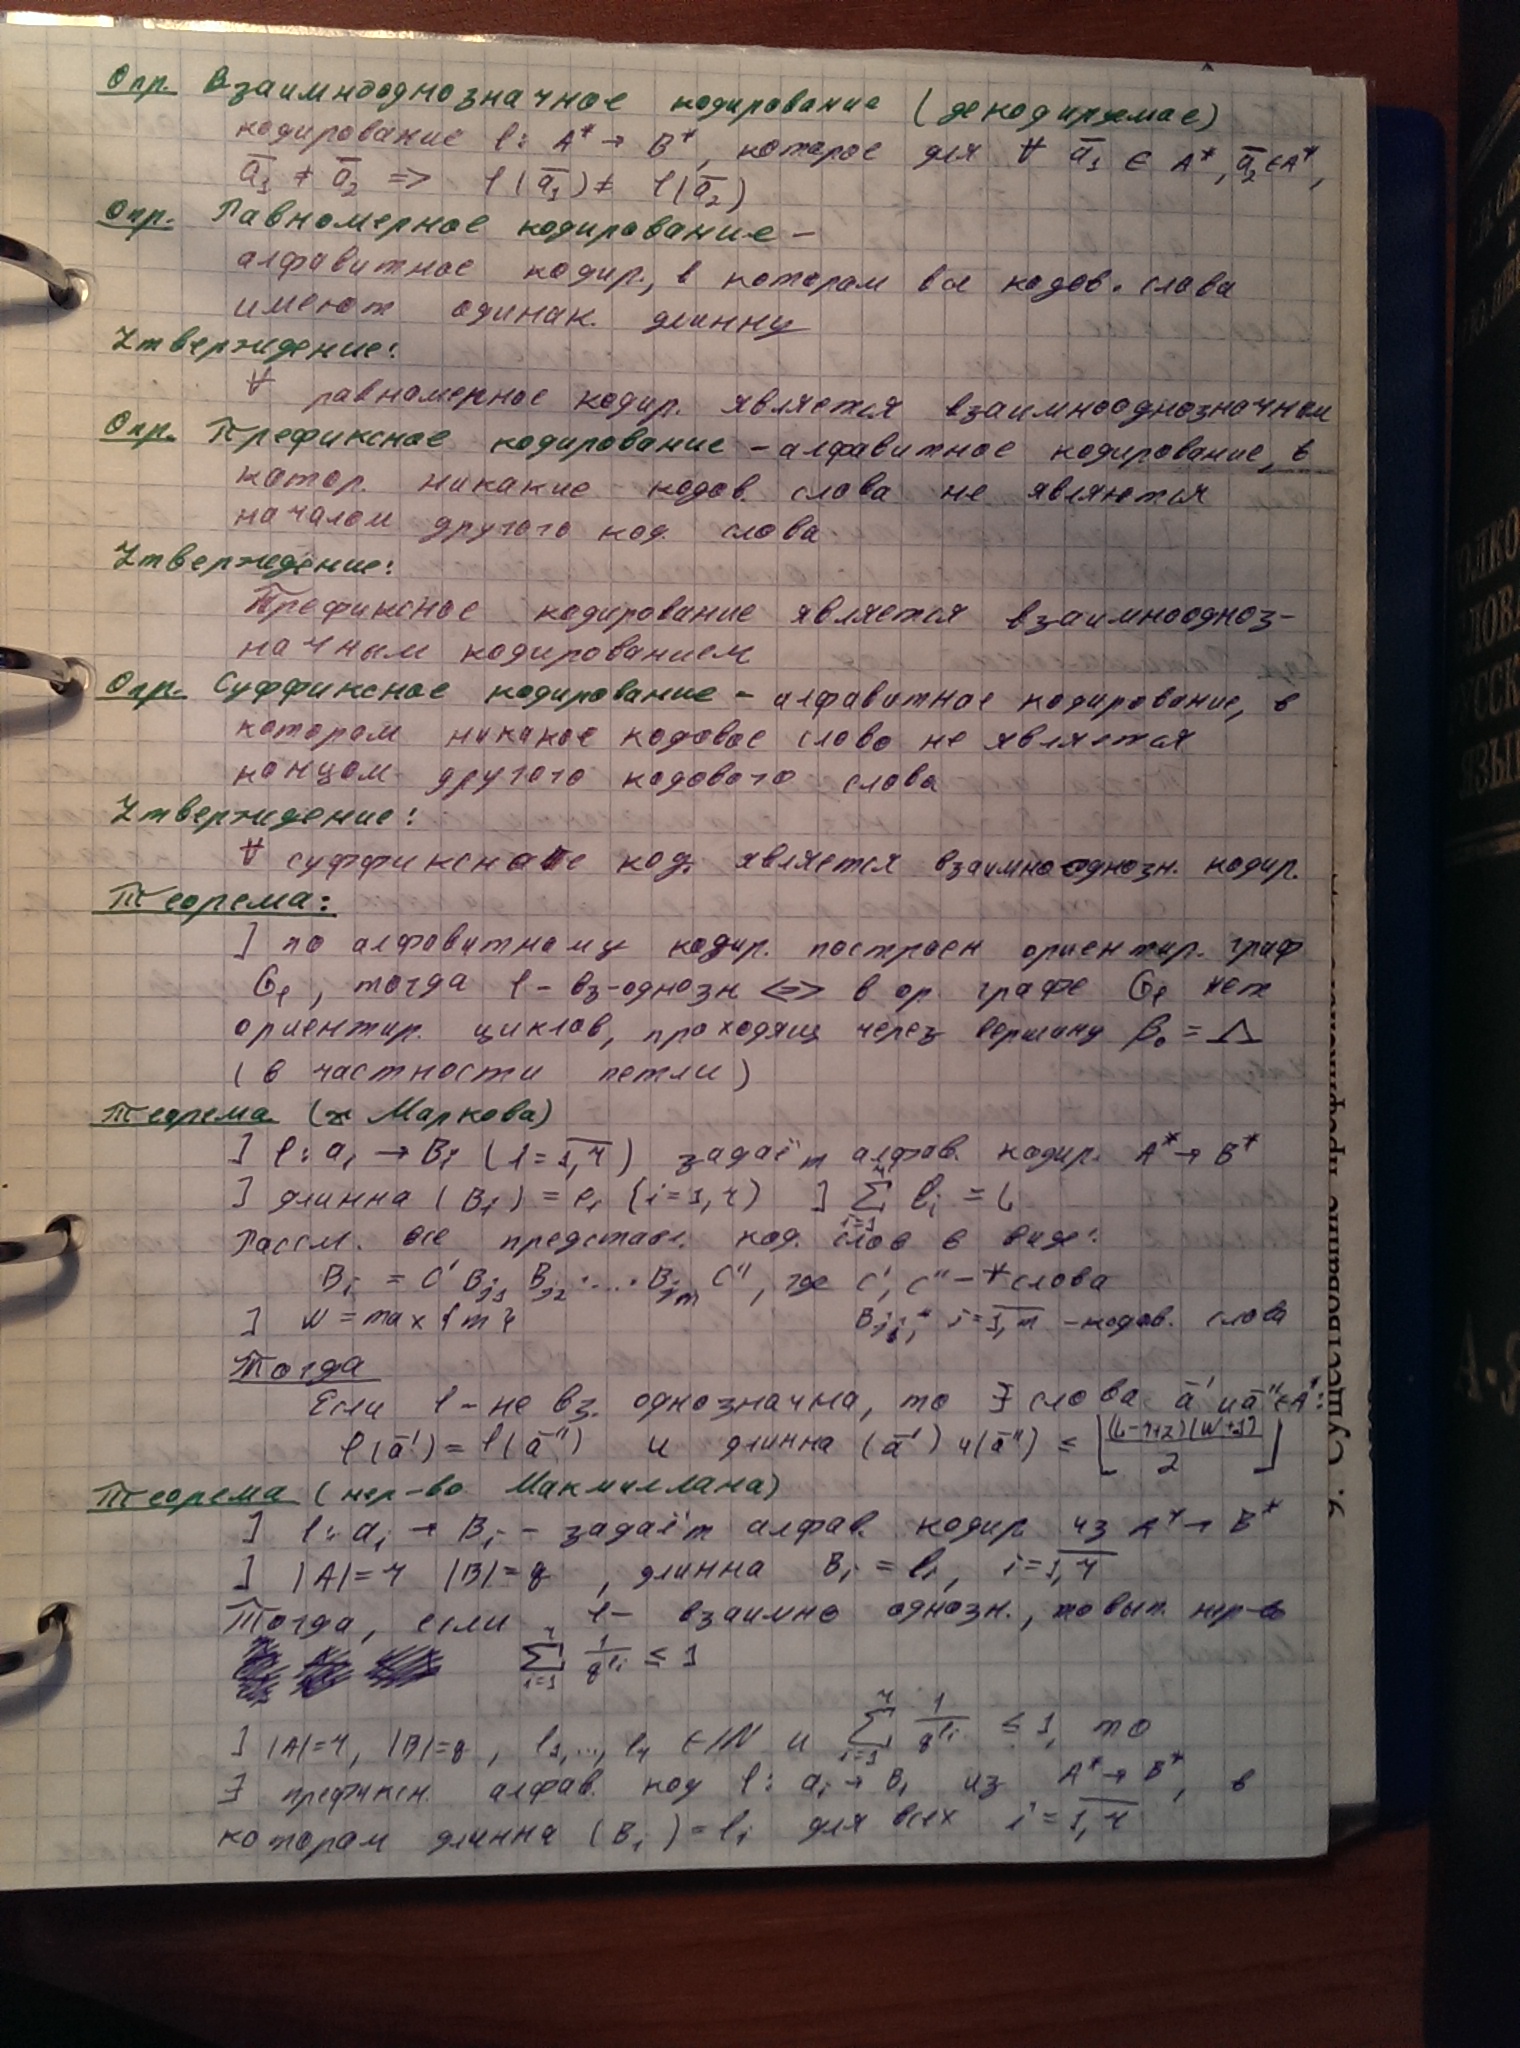 Опр. Взаимнооднозначное кодирование (декодируемое)
кодирование f: A* → B*, которое для ∀ a̅₁ ∈ A*, a̅₂ ∈ A*,
a̅₁ ≠ a̅₂ => f(a̅₁) ≠ f(a̅₂)
Опр. Равномерное кодирование –
алфавитное кодир., в котором все кодов. слова
имеют одинак. длинну
Утверждение:
∀ равномерное кодир. является взаимнооднозначном
Опр. Префиксное кодирование – алфавитное кодирование, в
котор. никакие кодов. слова не являются
началом другого код. слова
Утверждение:
Префиксное кодирование является взаимнооднoз-
начным кодированием
Опр. Суффиксное кодирование – алфавитное кодирование, в
котором никакое кодовое слово не является
концом другого кодового слова
Утверждение:
∀ суффиксное код. является взаимнооднозн. кодир.
Теорема:
] по алфавитному кодир. построен ориентир. граф
G_f, тогда f – вз-однозн <=> в ор. графе G_f нет
ориентир. циклов, проходящ через вершину β₀ = Λ
(в частности петли)
Теорема (Маркова)
] f: aᵢ → Bᵢ (i = 1,r) задаёт алфав. кодир. A* → B*
] длинна (Bᵢ) = lᵢ (i = 1, r) ] ∑ᵢ₌₁ʳ lᵢ = L
Рассм. все представл. код. слов в виде:
Bᵢ = C' B_j₁ B_j₂ ... B_jm C", где C', C" – ∀ слова
] W = max{m} B_jᵢ, i = 1,m – кодов. слова
Тогда
Если f – не вз. однозначна, то ∃ слова a̅' и a̅" ∈ A*:
f(a̅') = f(a̅") и длинна (a̅') и (a̅") ≤ ⌊(L-r+2)(W+1)/2⌋
Теорема (нер-во Макмиллана)
] f: aᵢ → Bᵢ – задаёт алфав. кодир из A* → B*
] |A| = r |B| = q, длинна Bᵢ = lᵢ, i = 1,r
Тогда, если f – взаимно однозн., то вып. нер-во
∑ᵢ₌₁ʳ 1/q^lᵢ ≤ 1
] |A|=r, |B|=q, l₁,..., l_r ∈ ℕ и ∑ᵢ₌₁ʳ 1/q^lᵢ ≤ 1, то
∃ префиксн. алфав. код f: aᵢ → Bᵢ из A* → B*, в
котором длинна (Bᵢ) = lᵢ для всех i = 1,r
9. Существование префиксного